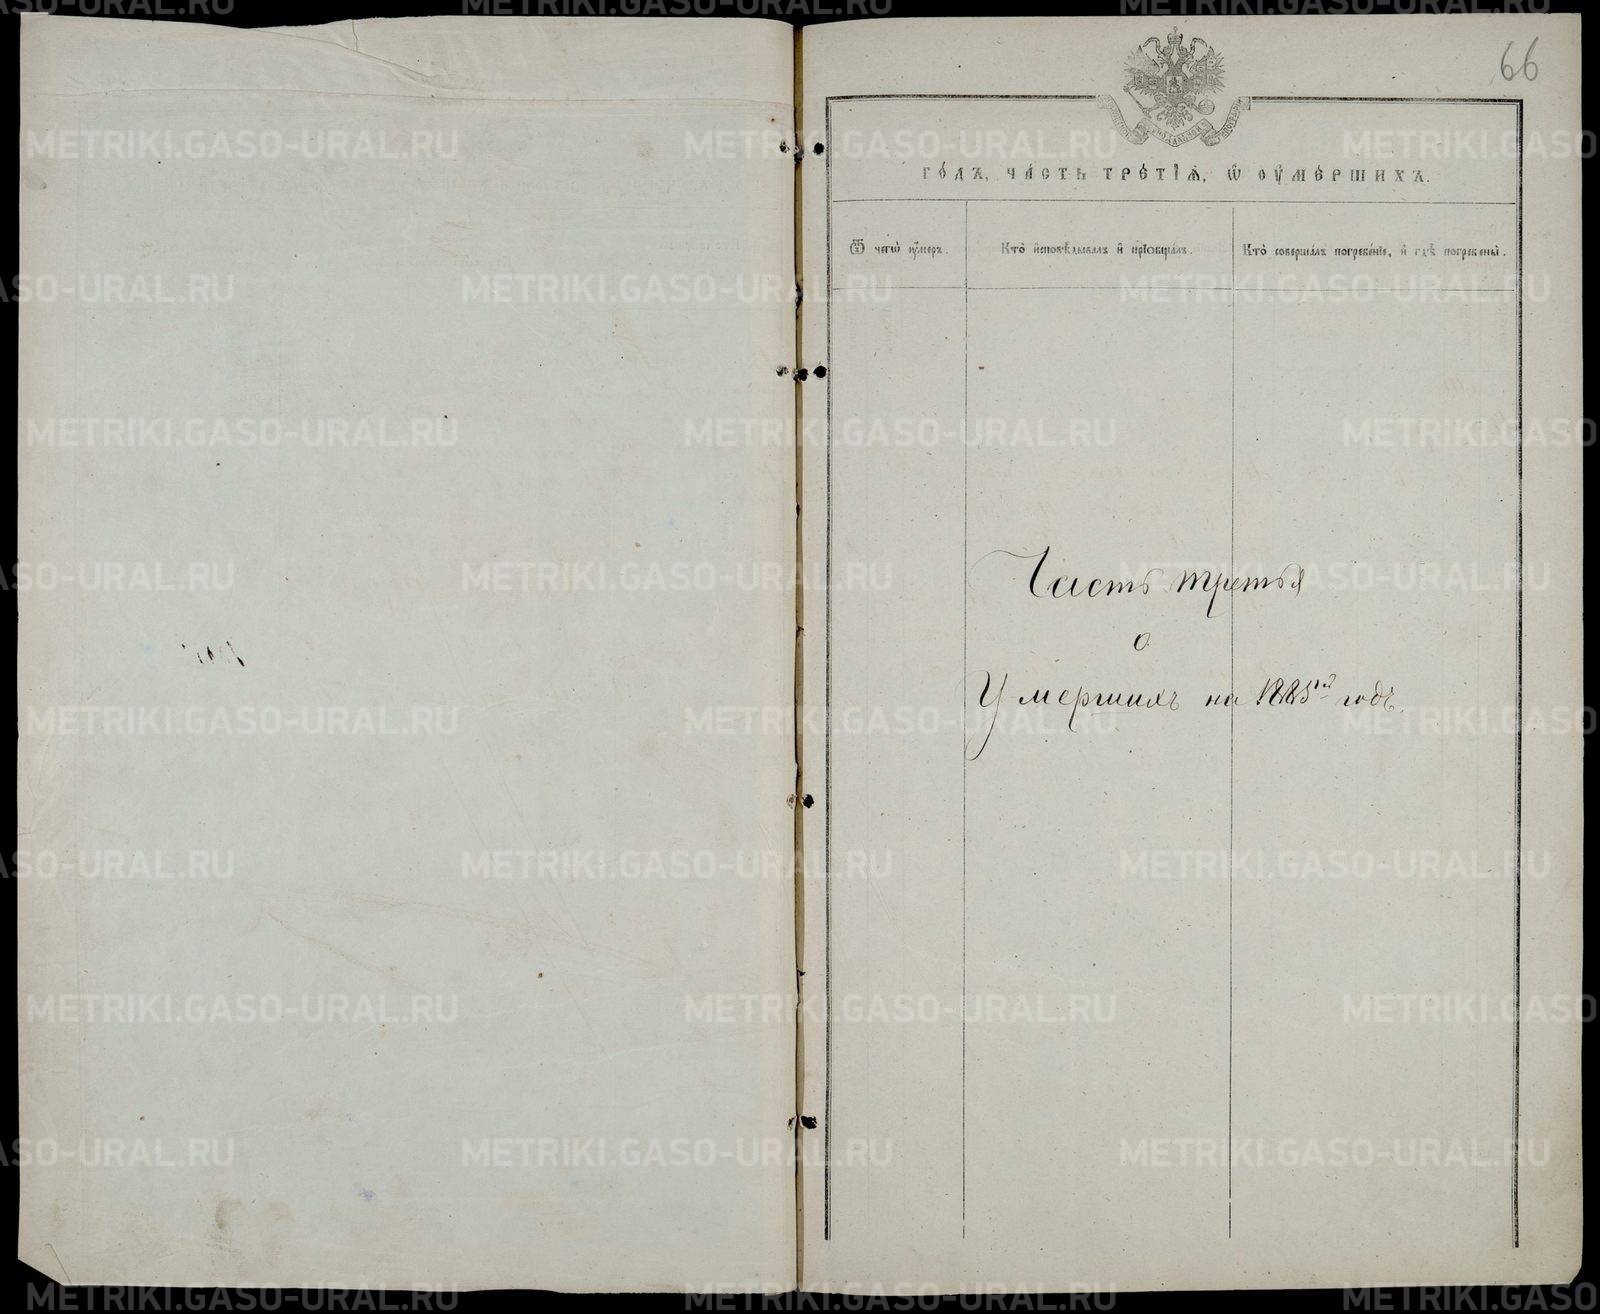 66
ГО́ДЪ, ЧА́СТЬ ТРЕ́ТІѦ, Ѿ ОУ҆МЕ́РШИХЪ.
Ѿ чегѡ̀ ᲂу҆́меръ.
Кто̀ и҆сповѣ́дывалъ и҆ прїѡбща́лъ.
Кто̀ соверша́лъ погребе́нїе, и҆ гдѣ̀ погребены̀.
Часть третья
о
Умершихъ на 1885ый годъ.
METRIKI.GASO-URAL.RU